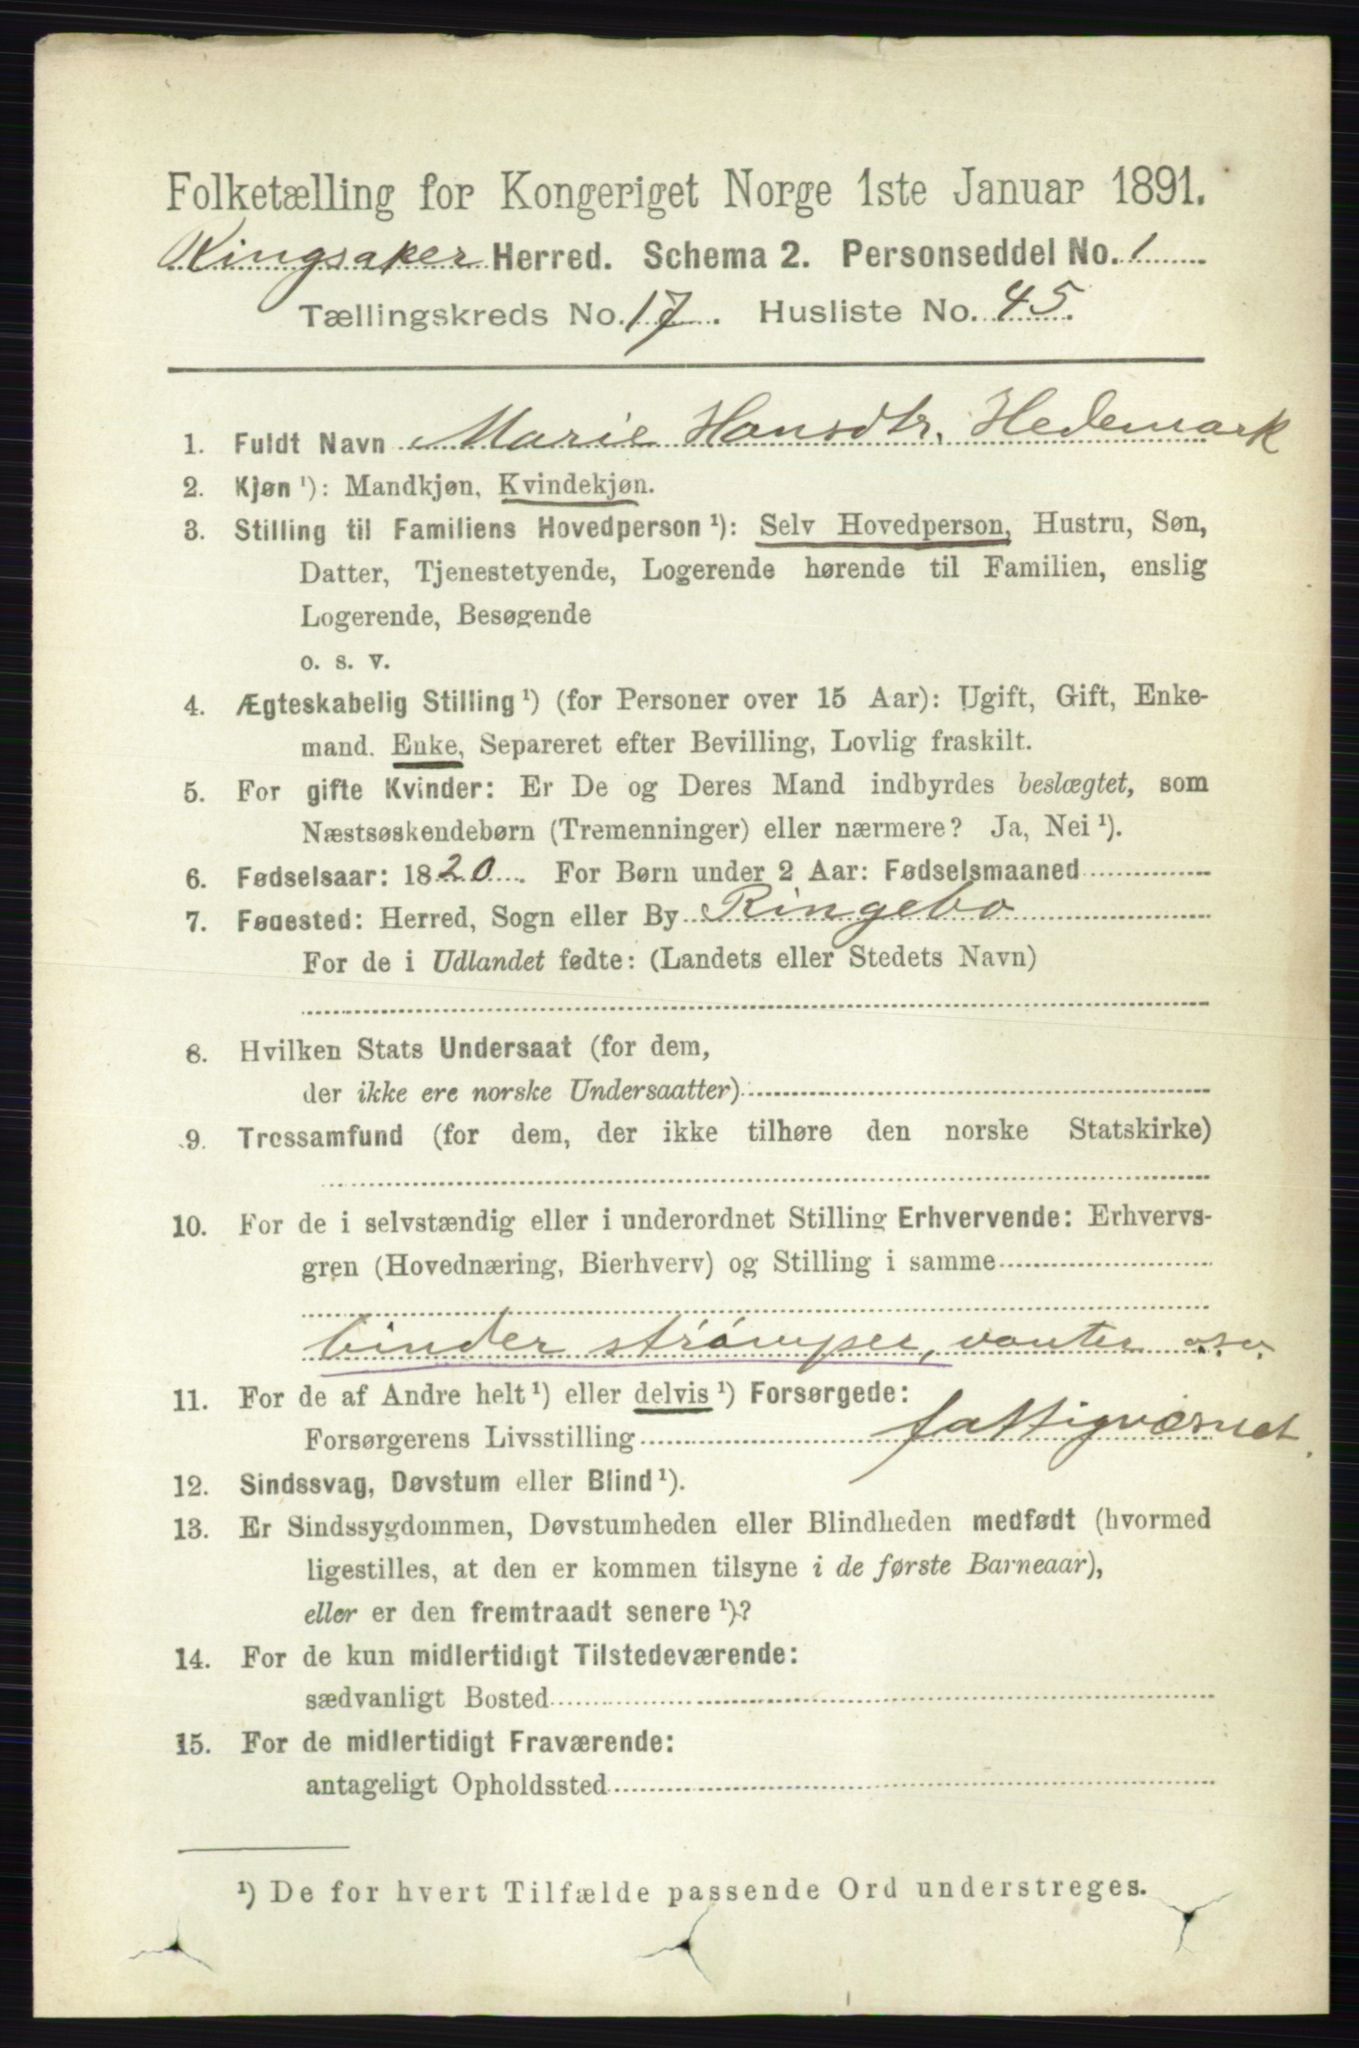 Folketælling for Kongeriget Norge 1ste Januar 1891.
Ringsaker Herred. Schema 2. Personseddel No. 1
Tællingskreds No. 17. Husliste No. 45.
1. Fuldt Navn Marie Hansdtr. Hedemark
2. Kjøn ¹): Mandkjøn, Kvindekjøn.
3. Stilling til Familiens Hovedperson ¹): Selv Hovedperson, Hustru, Søn,
Datter, Tjenestetyende, Logerende hørende til Familien, enslig
Logerende, Besøgende
o. s. v.
4. Ægteskabelig Stilling ¹) (for Personer over 15 Aar): Ugift, Gift, Enke-
mand. Enke, Separeret efter Bevilling, Lovlig fraskilt.
5. For gifte Kvinder: Er De og Deres Mand indbyrdes beslægtet, som
Næstsøskendebørn (Tremenninger) eller nærmere? Ja, Nei ¹).
6. Fødselsaar: 1820. For Børn under 2 Aar: Fødselsmaaned
7. Fødested: Herred, Sogn eller By Ringebo
For de i Udlandet fødte: (Landets eller Stedets Navn)
8. Hvilken Stats Undersaat (for dem,
der ikke ere norske Undersaatter)
9. Trossamfund (for dem, der ikke tilhøre den norske Statskirke)
10. For de i selvstændig eller i underordnet Stilling Erhvervende: Erhvervs-
gren (Hovednæring, Bierhverv) og Stilling i samme
binder strømper, vanter o.s.v.
11. For de af Andre helt ¹) eller delvis ¹) Forsørgede:
Forsørgerens Livsstilling fattigvæsnet.
12. Sindssvag, Døvstum eller Blind ¹).
13. Er Sindssygdommen, Døvstumheden eller Blindheden medfødt (hvormed
ligestilles, at den er kommen tilsyne i de første Barneaar),
eller er den fremtraadt senere ¹)?
14. For de kun midlertidigt Tilstedeværende:
sædvanligt Bosted
15. For de midlertidigt Fraværende:
antageligt Opholdssted
¹) De for hvert Tilfælde passende Ord understreges.